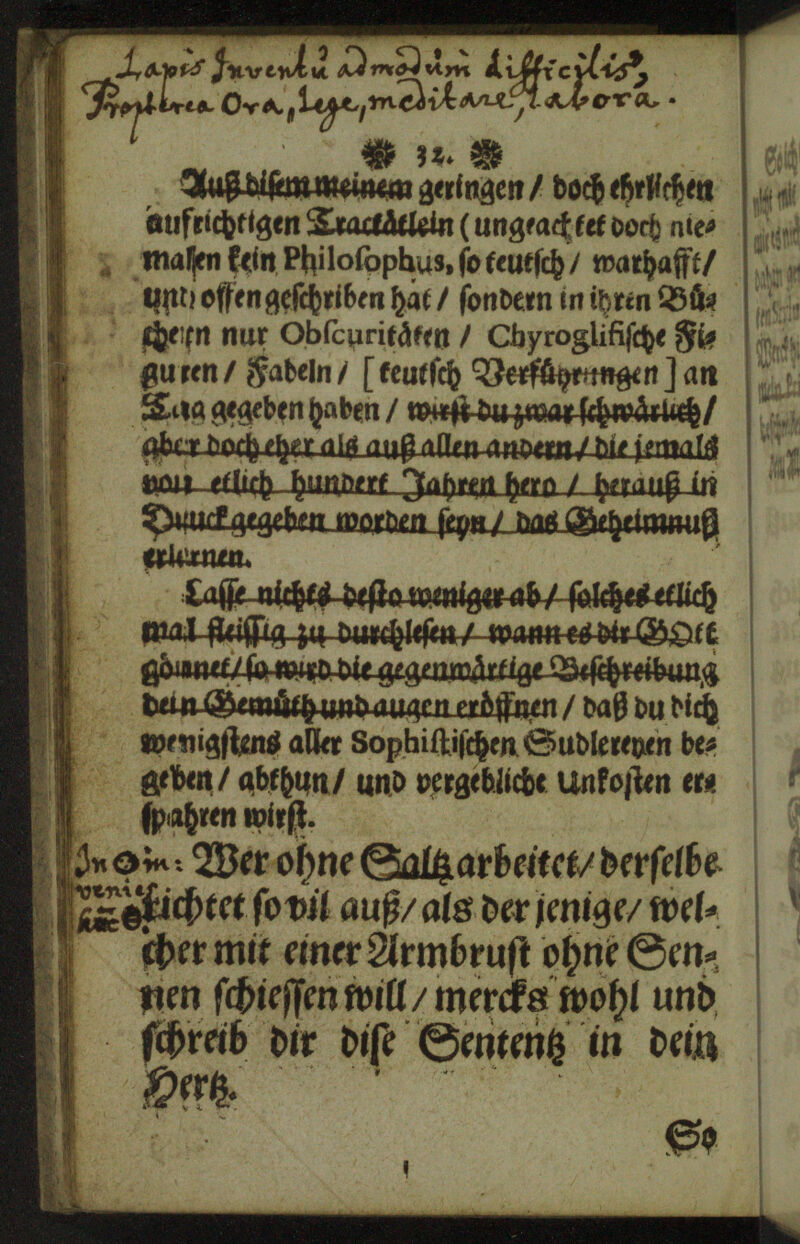 Lapis Inventu admodum difficilis,
Propterea Ora, lege, meditare, labora.
32.
Auß disem meinem geringen / doch ehrlichen
aufrichtigen Tractätlein (ungeachtet doch nie-
malsen kein Philosophus, so teutsch / warhafft /
unnd offen geschriben hat / sondern in ihren Bü-
chern nur Obscuritäten / Chyroglifische Fi-
guren / Fabeln / [teutsch Verführungen] an
Tag gegeben haben / wirst du zwar schwärlich /
aber doch eher als auß allen andern / die jemals
von etlich hundert Jahren hero / herauß in
Druck gegeben worden seyn / das Geheimnuß
erlernen.
Lasse nichts desto weniger ab / solches etlich
mal fleissig zu durchlesen / wann es dir GOtt
gönnet / so wird die gegenwärtige Beschreibung
dein Gemüth und augen eröffnen / daß du dich
wenigstens aller Sophistischen Sudlereyen be-
geben / abthun / und vergebliche Unkosten er-
spahren wirst.
Wer ohne Saltz arbeitet / derselbe
richtet so vil auß / als der jenige / wel-
cher mit einer Armbrust ohne Sen-
nen schiessen will / mercks wohl und
schreib dir dise Sententz in dein
Hertz.
So